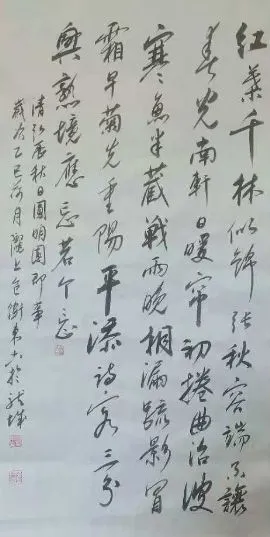 紅葉千林似錦張秋容端不讓
春光南軒日暖帘初捲曲沼波
寒魚半藏戰雨晚桐漏疏影冒
霜早菊先重陽平添詩客三分
興熟境應忘若个忘
清弘历秋日圓明園即事
歲次乙巳荷月隴上包衛東書於龍城